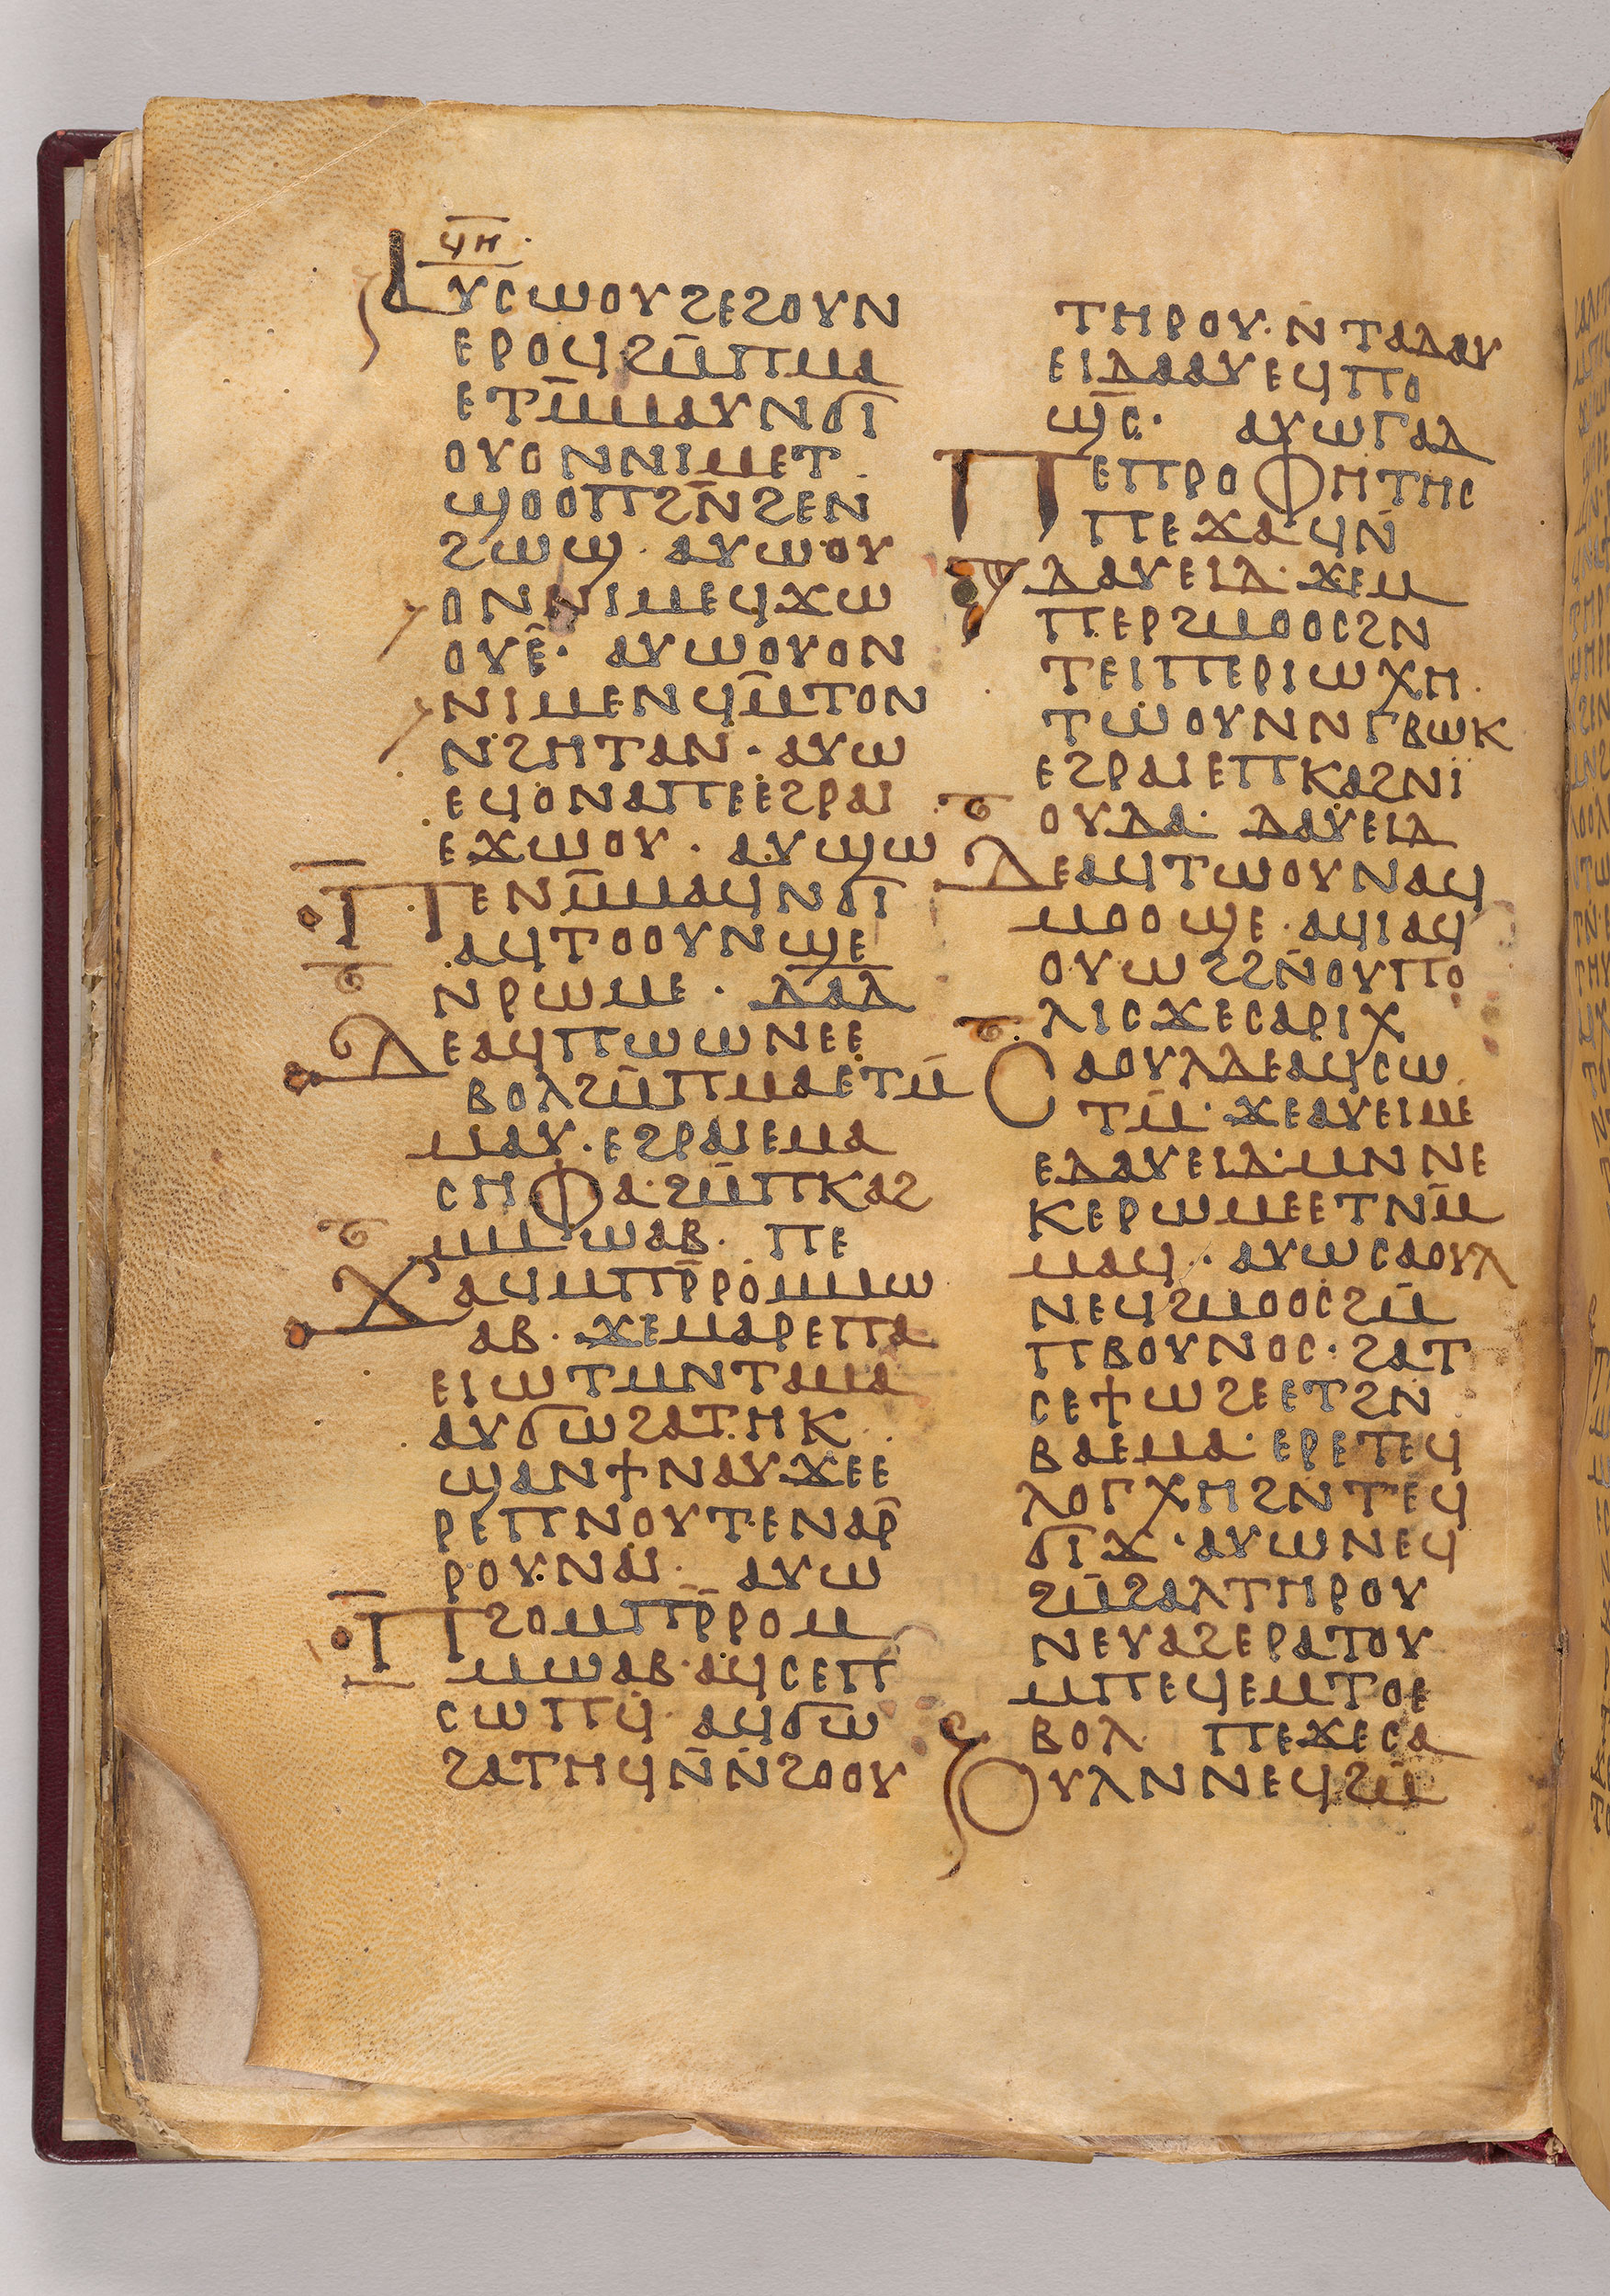 ϥⲏ
ⲁⲩⲥⲱⲟⲩϩⲉϩⲟⲩⲛ
ⲉⲣⲟϥϩⲙ̄ⲡⲙⲁ
ⲉⲧⲙ̄ⲙⲁⲩⲛϭⲓ
ⲟⲩⲟⲛⲛⲓⲙⲉⲧ
ϣⲟⲟⲡϩⲛ̄ϩⲉⲛ
ϩⲱⲱϣ· ⲁⲩⲱⲟⲩ
ⲟⲛⲛⲓⲙⲉϥϫⲱ
ⲟⲩⲉ̄· ⲁⲩⲱⲟⲩⲟⲛ
ⲛⲓⲙⲉⲛϥⲙ̄ⲧⲟⲛ
ⲛϩⲏⲧⲁⲛ· ⲁⲩⲱ
ⲉϥⲟⲛⲁⲡⲉⲉϩⲣⲁⲓ
ⲉϫⲱⲟⲩ· ⲁⲩϣⲱ
ⲡⲉⲛⲙ̄ⲙⲁϥⲛϭⲓ
ⲁϥⲧⲟⲟⲩⲛϣⲉ
ⲛⲣⲱⲙⲉ· ⲇⲁ̄ⲇ
ⲇⲉⲁϥⲡⲱⲱⲛⲉⲉ
ⲃⲟⲗϩⲙ̄ⲡⲙⲁⲉⲧⲙ̄
ⲙⲁⲩ· ⲉϩⲣⲁⲓⲉⲙⲁ
ⲥⲏⲫⲁ· ϩⲙ̄ⲡⲕⲁϩ
ⲙⲙⲱⲁⲃ· ⲡⲉ
ϫⲁϥⲙⲡⲣ̄ⲣⲟⲙⲙⲱ
ⲁⲃ· ϫⲉⲙⲁⲣⲉⲡⲁ
ⲉⲓⲱⲧⲙⲛⲧⲁⲙⲁ
ⲁⲩϭⲱϩⲁⲧⲏⲕ
ϣⲁⲛϯⲛⲁⲩϫⲉⲉ
ⲣⲉⲡⲛⲟⲩⲧⲉⲛⲁⲣ̄
ⲣⲟⲩ·ⲛⲁⲓ· ⲁⲩⲱ
ⲡϩⲟⲙⲡⲣ̄ⲣⲟⲙ
ⲙⲱⲁⲃ·ⲁϥⲥⲉⲡ
ⲥⲱⲡϥ· ⲁϥϭⲱ
ϩⲁⲧⲏϥⲛ̄ⲛ̄ϩⲟⲟⲩ
ⲧⲏⲣⲟⲩ·ⲛ̄ⲧⲁⲇⲁⲩ
ⲉⲓⲇⲁⲁⲩⲉϥⲡⲟ
ϣ̄ⲥ· ⲁⲩⲱⲅⲁⲇ
ⲡⲉⲡⲣⲟⲫⲏⲧⲏⲥ
ⲡⲉϫⲁϥⲛ̄
ⲇⲁⲩⲉⲓⲇ· ϫⲉⲙ
ⲡⲉⲣϩⲙⲟⲟⲥϩⲛ
ⲧⲉⲓⲡⲉⲣⲓⲱⲭⲏ·
ⲧⲱⲟⲩⲛⲛⲅⲃⲱⲕ
ⲉϩⲣⲁⲓⲉⲡⲕⲁϩⲛⲓ̈
ⲟⲩⲇⲁ· ⲇⲁⲩⲉⲓⲇ
ⲇⲉⲁϥⲧⲱⲟⲩⲛⲁϥ
ⲙⲟⲟϣⲉ· ⲁϥⲓⲁϥ
ⲟⲩⲱϩϩⲛ̄ⲟⲩⲡⲟ
ⲗⲓⲥϫⲉⲥⲁⲣⲓⲭ
ⲥⲁⲟⲩⲗⲇⲉⲁϥⲥⲱ
ⲧⲙ̄· ϫⲉⲁⲩⲉⲓⲙⲉ
ⲉⲇⲁⲩⲉⲓⲇ·ⲙⲛⲛⲉ
ⲕⲉⲣⲱⲙⲉⲉⲧⲛⲙ̄
ⲙⲁϥ· ⲁⲩⲱⲥⲁⲟⲩⲗ
ⲛⲉϥϩⲙⲟⲟⲥϩⲙ̄
ⲡⲃⲟⲩⲛⲟⲥ· ϩⲁⲧ
ⲥⲉϯⲱϩⲉⲉⲧϩⲛ
ⲃⲁⲉⲙⲁ· ⲉⲣⲉⲧⲉϥ
ⲗⲟⲅⲭⲏϩⲛⲧⲉϥ
ϭⲓϫ· ⲁⲩⲱⲛⲉϥ
ϩⲙ̄ϩⲁⲗⲧⲏⲣⲟⲩ
ⲛⲉⲩⲁϩⲉⲣⲁⲧⲟⲩ
ⲙⲡⲉϥⲉⲙⲧⲟⲉ
ⲃⲟⲗ ⲡⲉϫⲉⲥⲁ
ⲟⲩⲗⲛⲛⲉϥϩⲙ̄